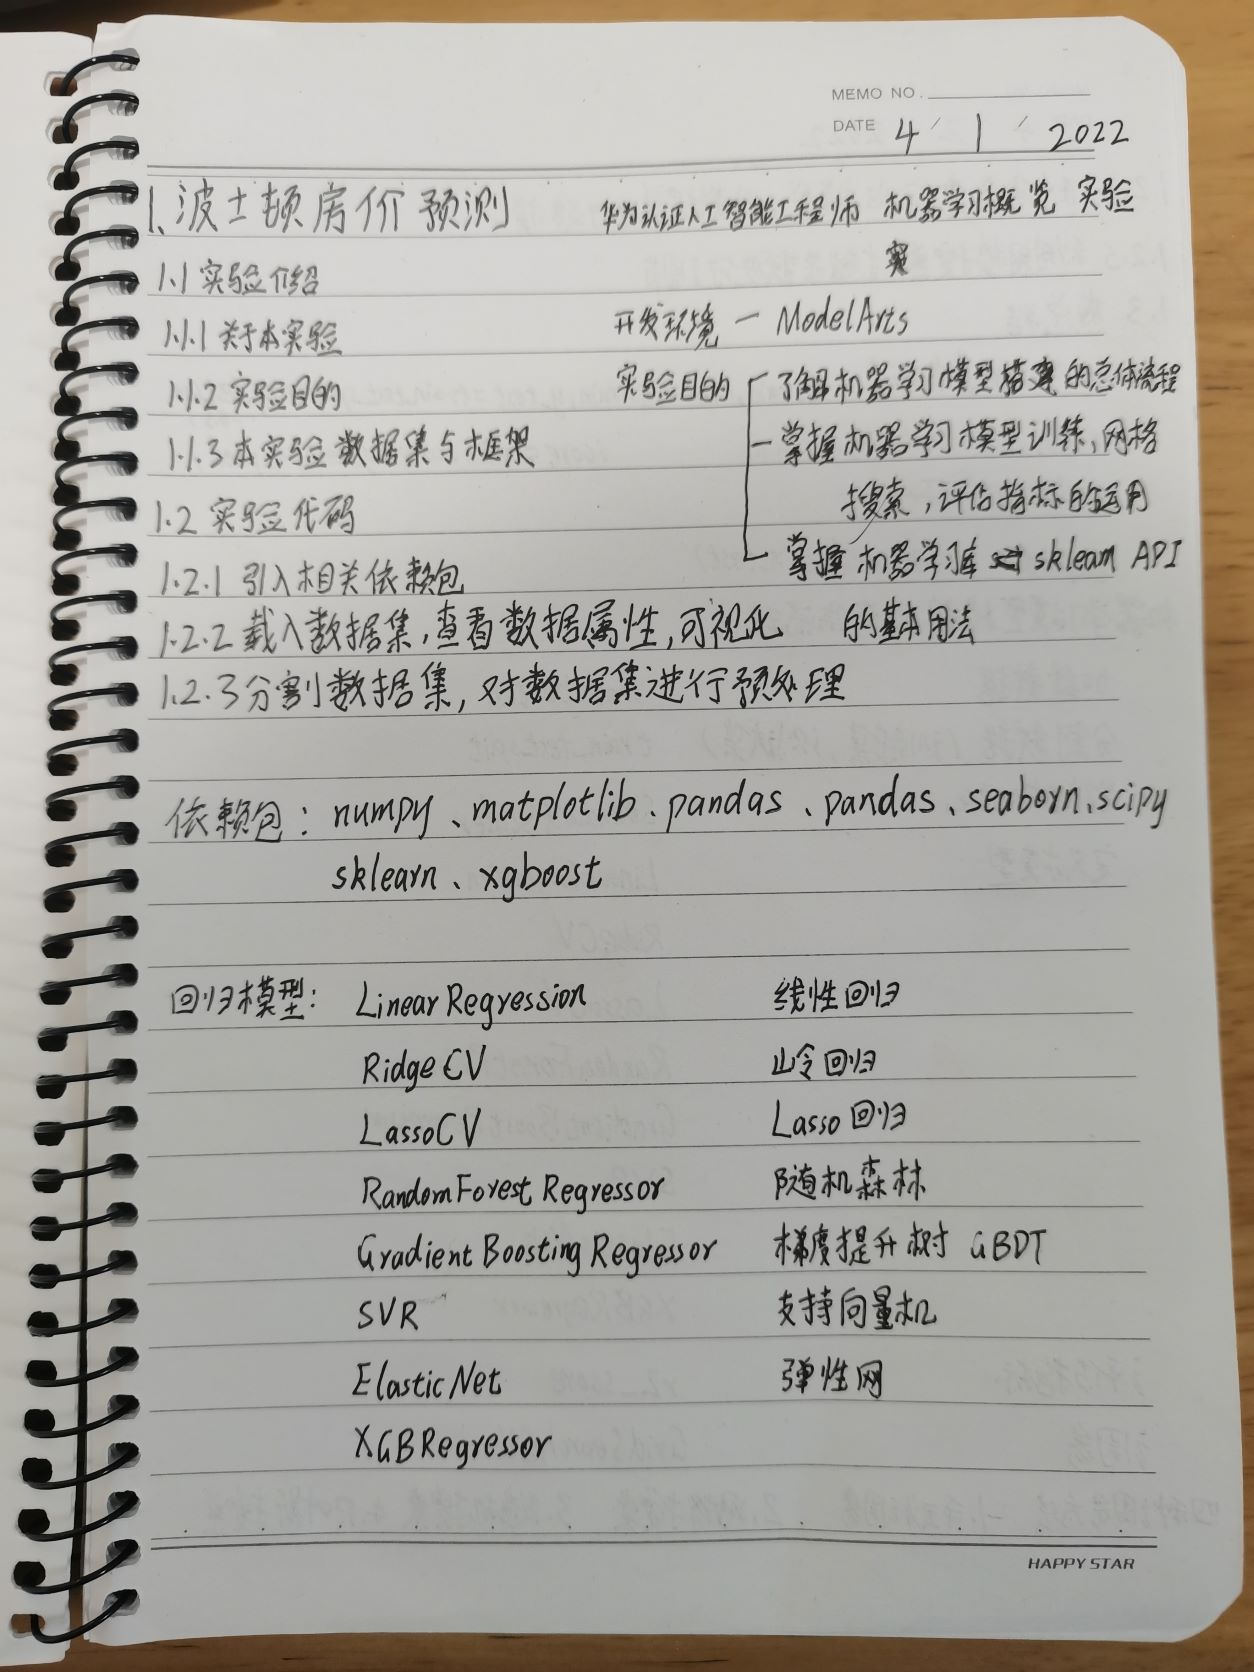 MEMO NO.
DATE 4 / 1 / 2022
1.波士顿房价预测 华为认证人工智能工程师 机器学习概览 实验
1.1 实验介绍
1.1.1 关于本实验 开发环境 — ModelArts
1.1.2 实验目的 实验目的 了解机器学习模型搭建的总体流程
1.1.3 本实验数据集与框架 — 掌握机器学习模型训练,网格
搜索,评估指标的运用
1.2 实验代码
掌握机器学习库 sklearn API
1.2.1 引入相关依赖包
1.2.2 载入数据集,查看数据属性,可视化 的基本用法
1.2.3 分割数据集,对数据集进行预处理
依赖包: numpy、matplotlib、pandas、pandas、seaborn、scipy
sklearn、xgboost
回归模型: LinearRegression 线性回归
RidgeCV 岭回归
LassoCV Lasso回归
RandomForestRegressor 随机森林
GradientBoostingRegressor 梯度提升树 GBDT
SVR 支持向量机
ElasticNet 弹性网
XGBRegressor
HAPPY STAR